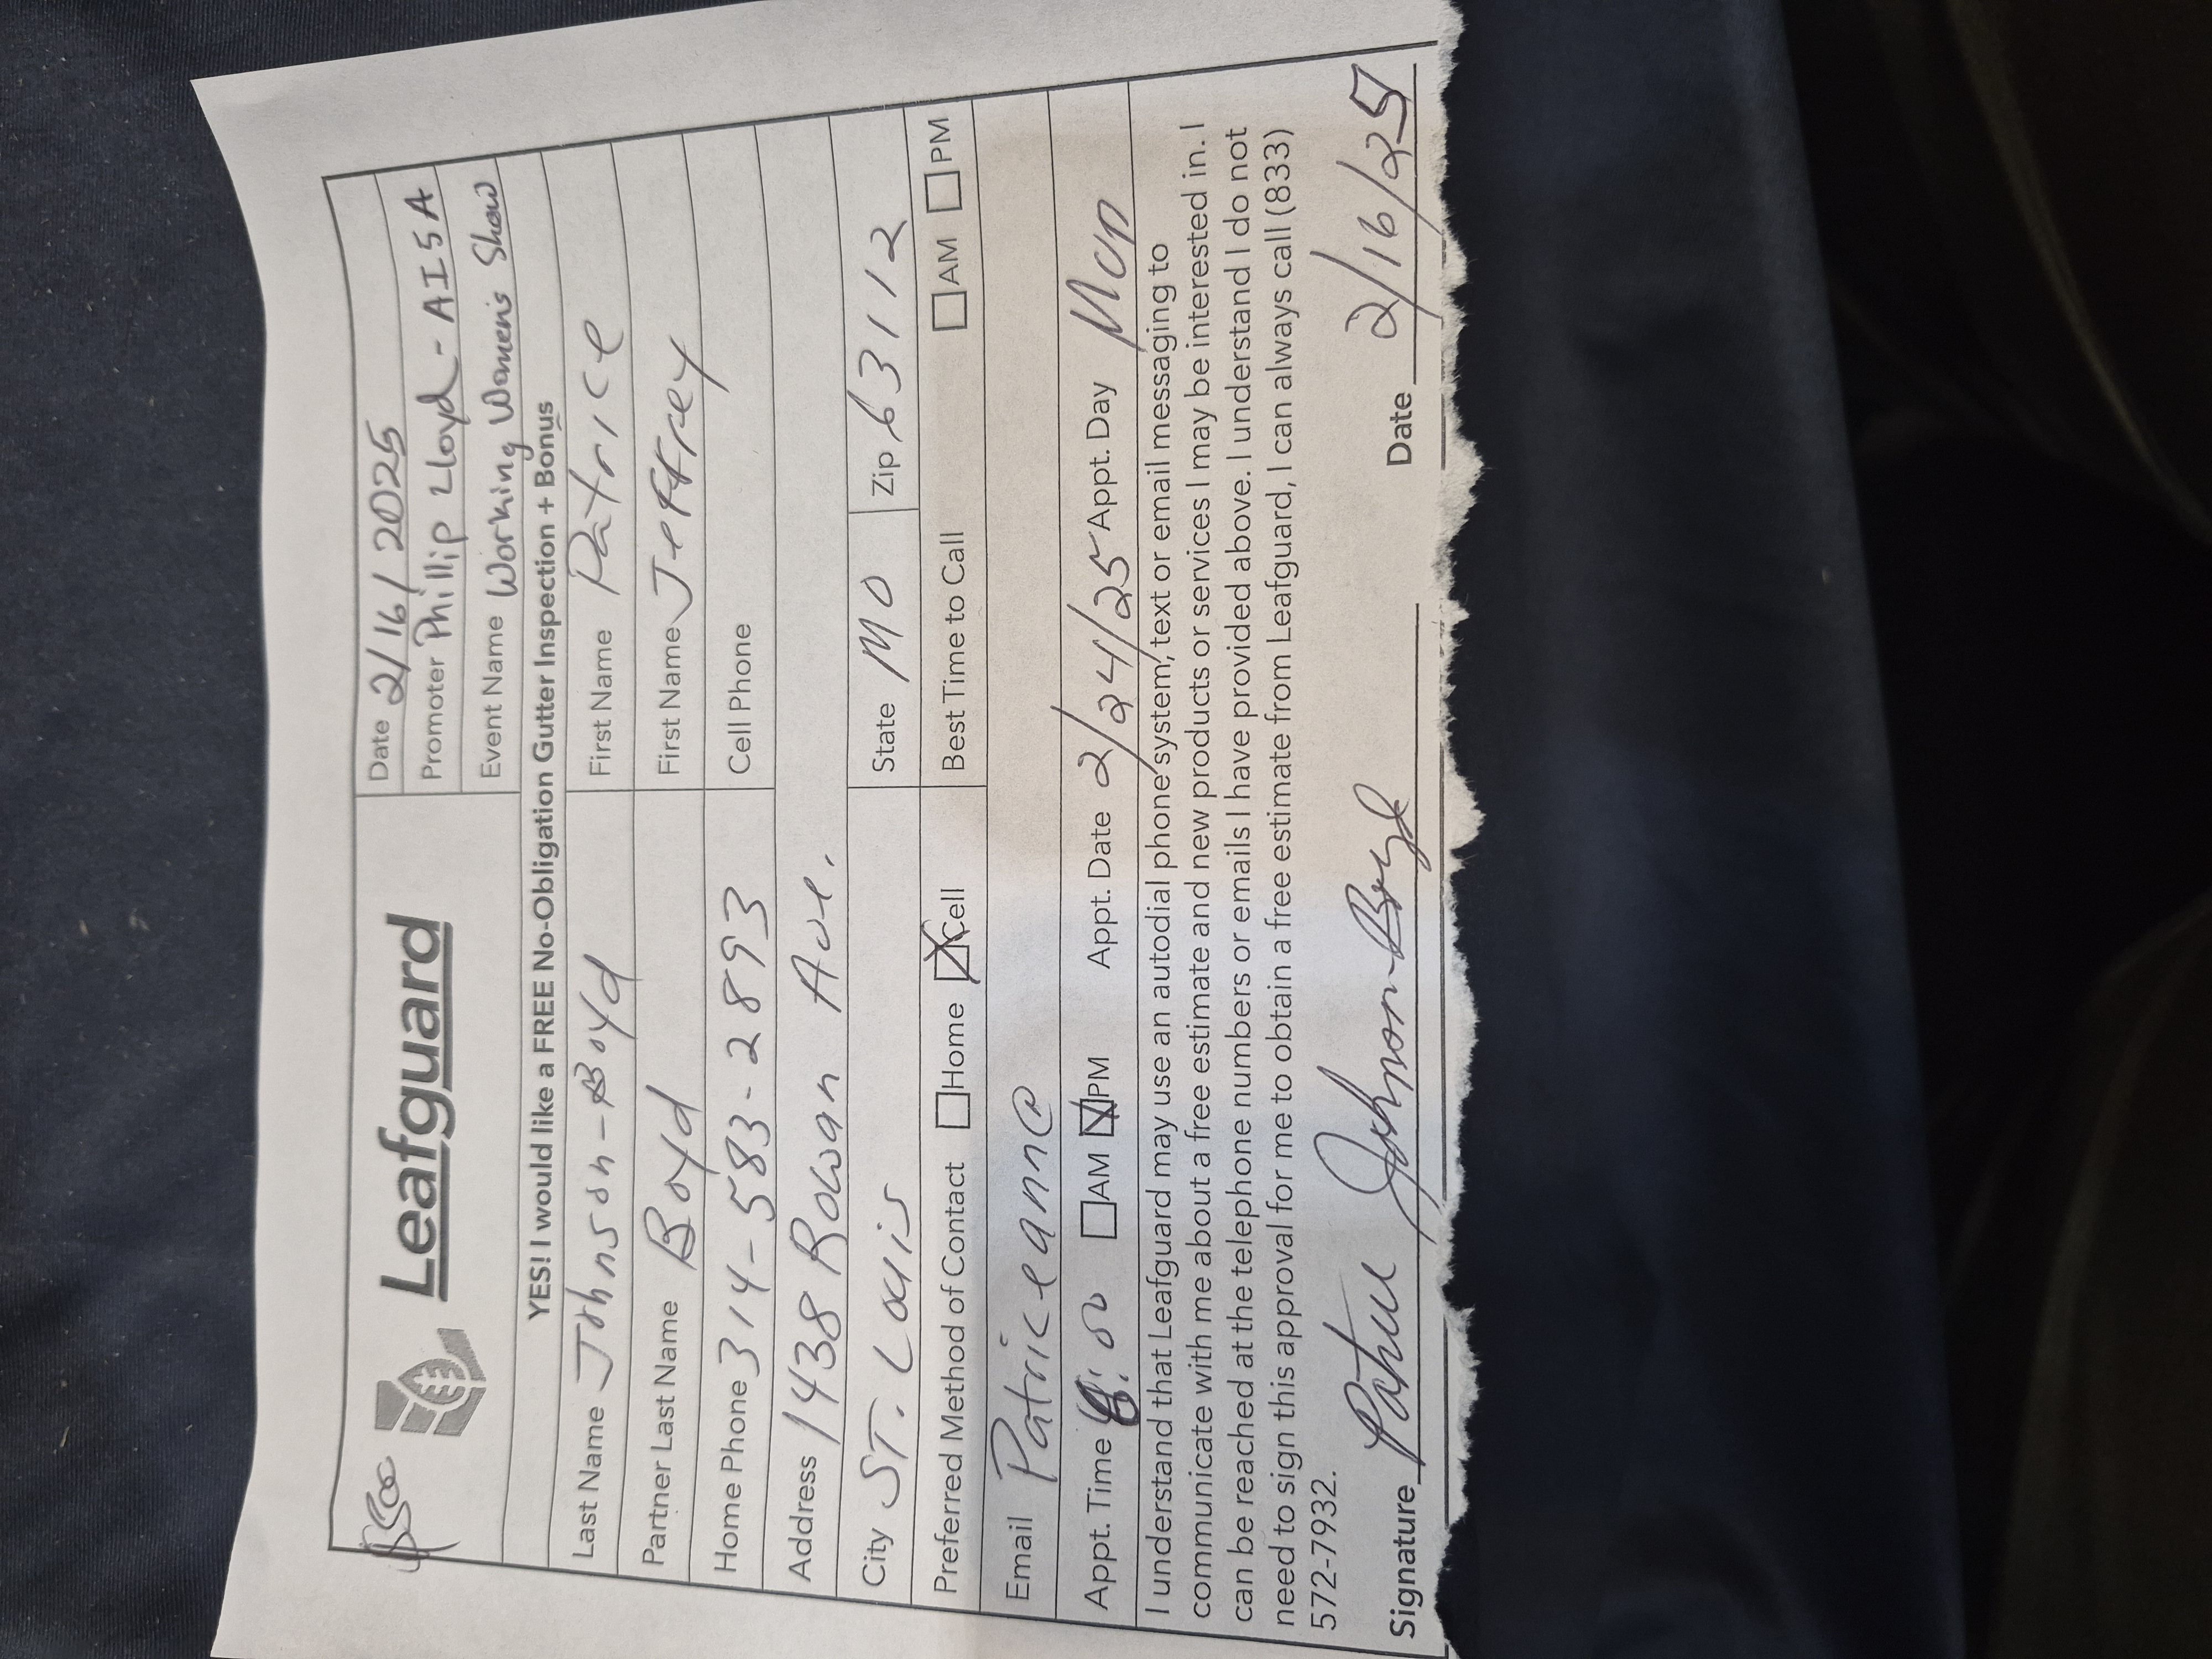 $500
Leafguard
Date 2/16/2025
Promoter Phillip Lloyd - AI5A
Event Name Working Women's Show
YES! I would like a FREE No-Obligation Gutter Inspection + Bonus
Last Name Johnson-Boyd First Name Patrice
Partner Last Name Boyd First Name Jeffrey
Home Phone 314-583-2893 Cell Phone
Address 1438 Rowan Ave.
City ST. Louis State MO Zip 63112
Preferred Method of Contact Home Cell Best Time to Call AM PM
Email Patriceann@
Appt. Time 6:00 AM PM Appt. Date 2/24/25 Appt. Day Mon
I understand that Leafguard may use an autodial phone system, text or email messaging to
communicate with me about a free estimate and new products or services I may be interested in. I
can be reached at the telephone numbers or emails I have provided above. I understand I do not
need to sign this approval for me to obtain a free estimate from Leafguard, I can always call (833)
572-7932.
Signature Patrice Johnson-Boyd Date 2/16/25